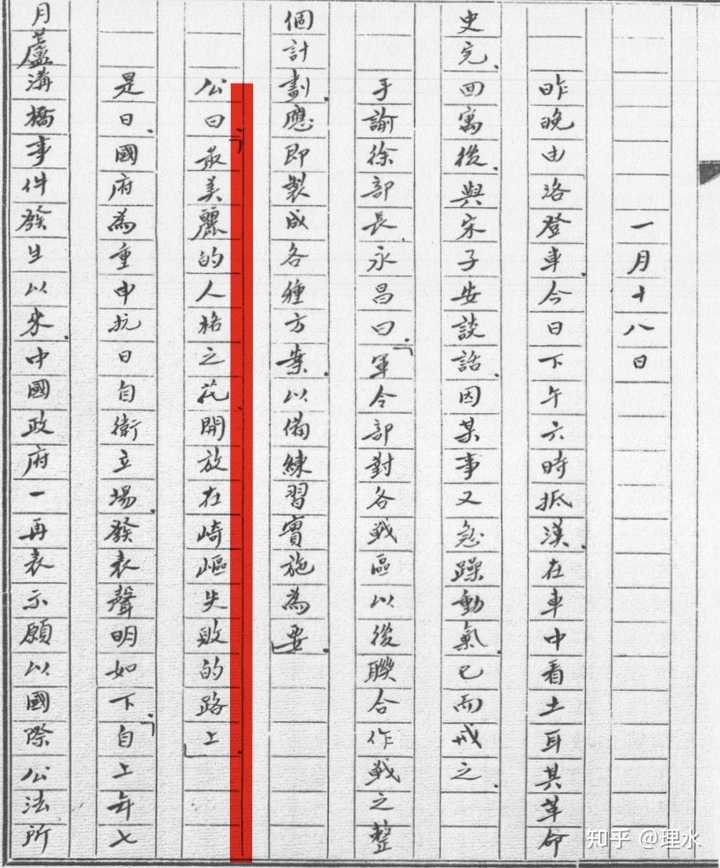 一月十八日
昨晚由洛登車、今日下午六時抵漢、在車中看土耳其革命
史完、回寓後、與宋子安談話、因某事又急躁動氣、已而戒之、
手諭徐部長、永昌曰、「軍令部對各戰區以後聯合作戰之整
個計劃、應即製成各種方案、以備練習實施為要、」
公曰、「最美麗的人格之花、開放在崎嶇失敗的路上、」
是日、國府為重申抗日自衛立場、發表聲明如下、「自上年七
月蘆溝橋事件發生以來、中國政府一再表示願以國際公法所
知乎 @理水